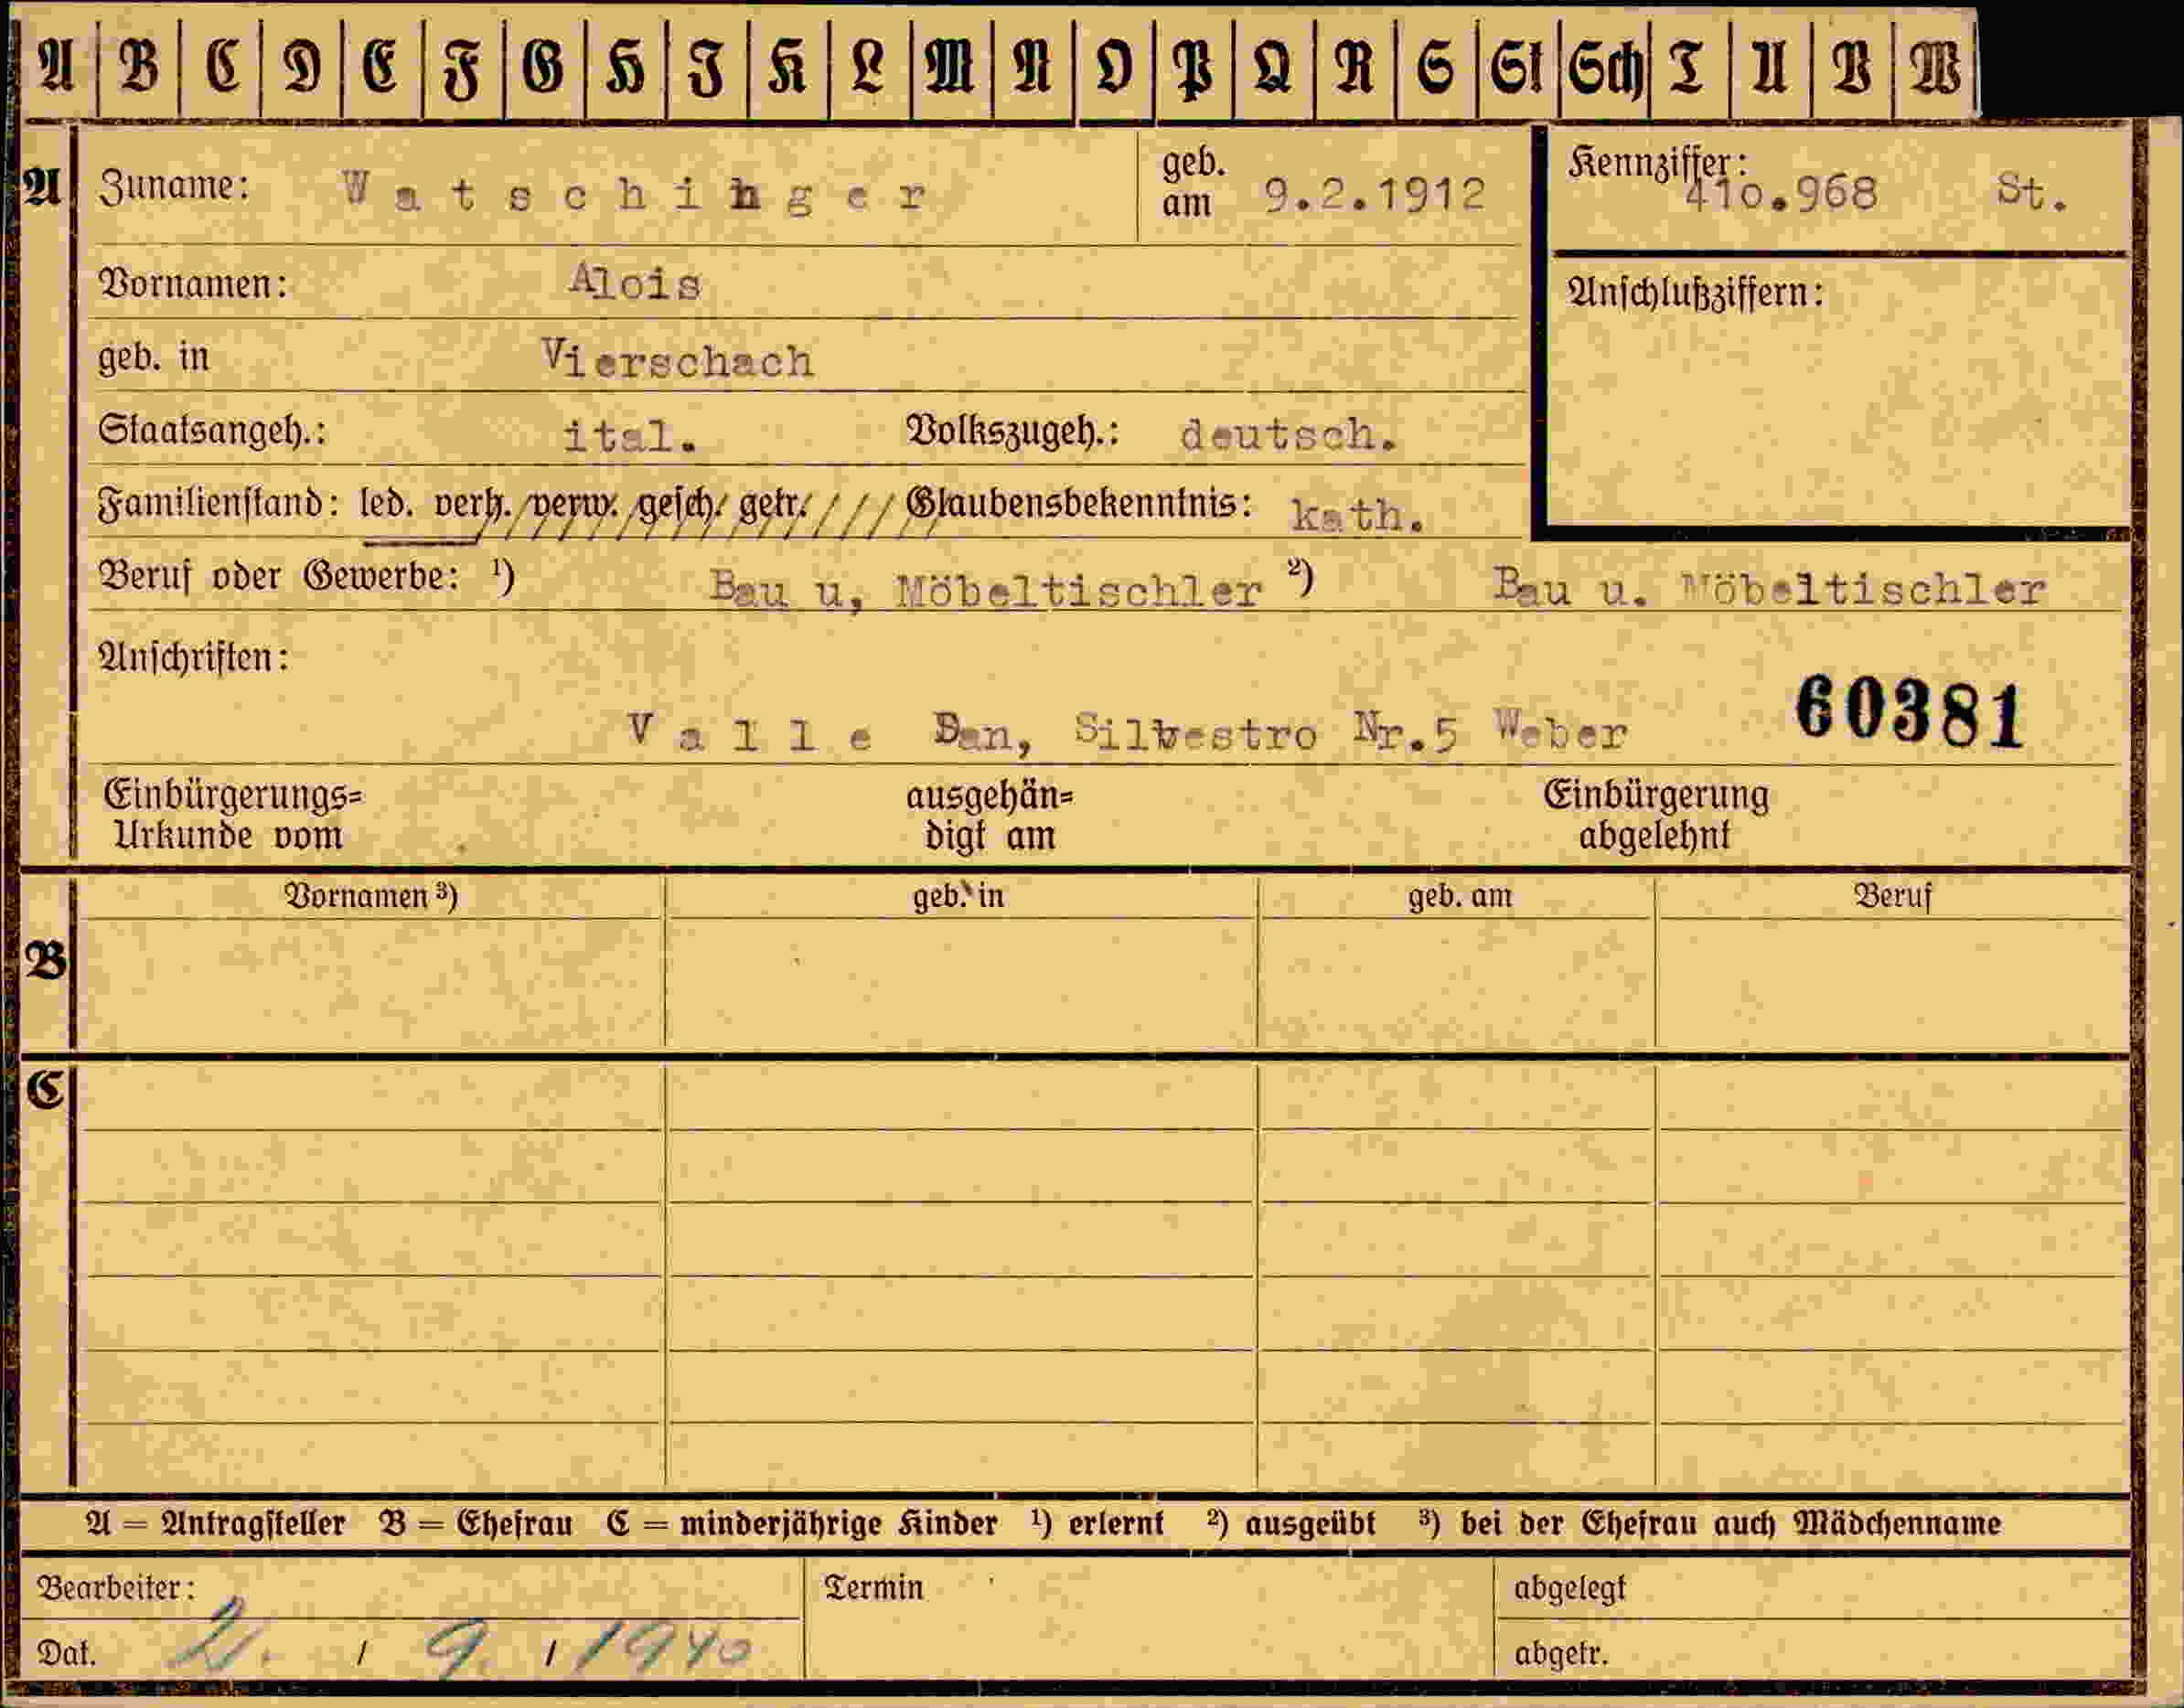 A B C D E F G H I K L M N O P Q R S St Sch T U V W
A Zuname: Watschinger geb. am 9.2.1912 Kennziffer: 410.968 St.
Vornamen: Alois Anschlußziffern:
geb. in Vierschach
Staatsangeh.: ital. Volkszugeh.: deutsch.
Familienstand: led. verh. verw. gesch. getr. Glaubensbekenntnis: kath.
Beruf oder Gewerbe: ¹) Bau u, Möbeltischler ²) Bau u. Möbeltischler
Anschriften:
60381
Valle San, Silvestro Nr.5 Weber
Einbürgerungs= ausgehän= Einbürgerung
Urkunde vom digt am abgelehnt
Vornamen ³) geb. in geb. am Beruf
B
C
A = Antragsteller B = Ehefrau C = minderjährige Kinder ¹) erlernt ²) ausgeübt ³) bei der Ehefrau auch Mädchenname
Bearbeiter: Termin abgelegt
Dat. 2. / 9. / 1940 abgetr.